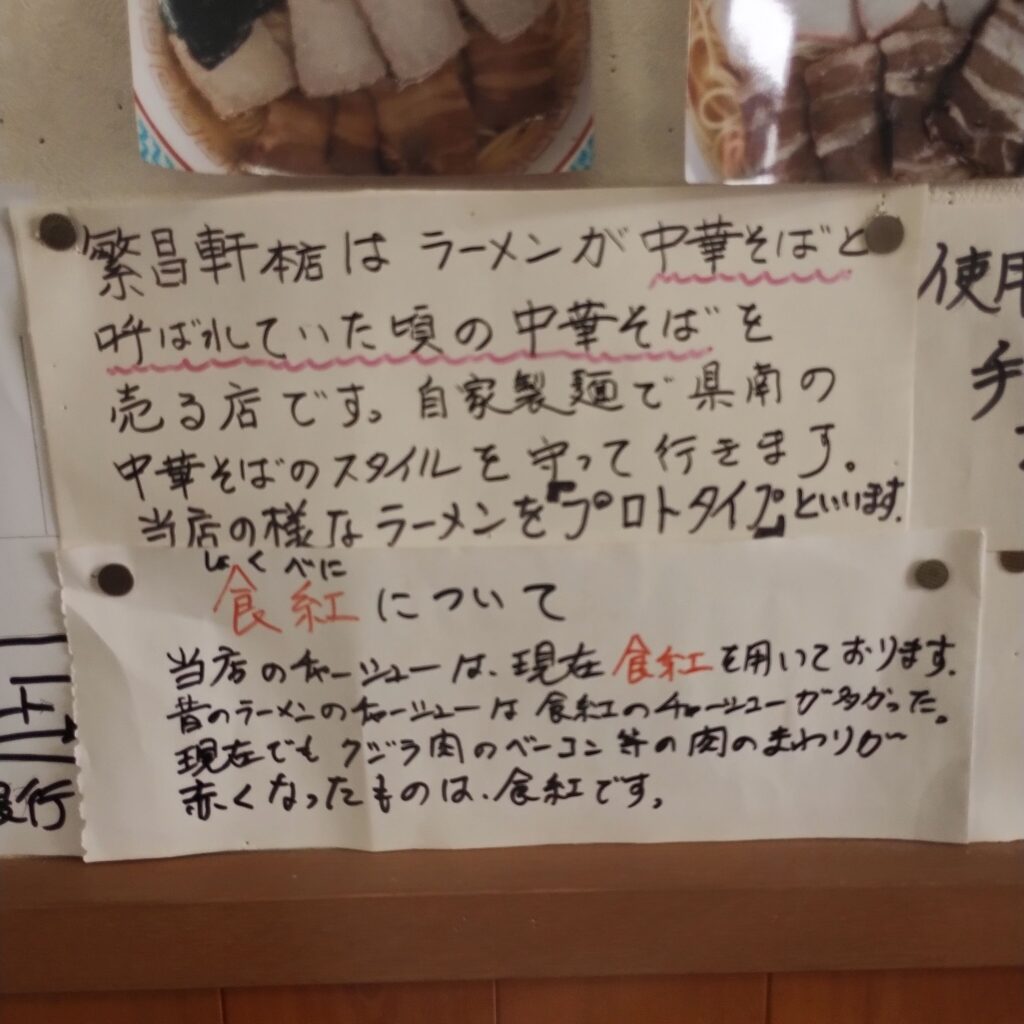 繁昌軒本店は ラーメンが中華そばと
呼ばれていた頃の中華そばを
売る店です。自家製麺で県南の
中華そばのスタイルを守って行きます。
当店の様なラーメンを『プロトタイプ』といいます。
しょく べに
食紅について
当店のチャーシューは、現在食紅を用いております。
昔のラーメンのチャーシューは食紅のチャーシューが多かった。
現在でもクジラ肉のベーコン等の肉のまわりが
赤くなったものは、食紅です。
使用
チ
行